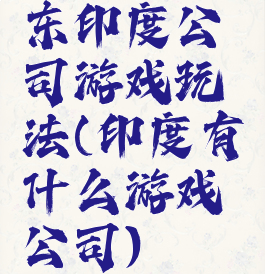 东印度公
司游戏玩
法(印度有
什么游戏
公司)